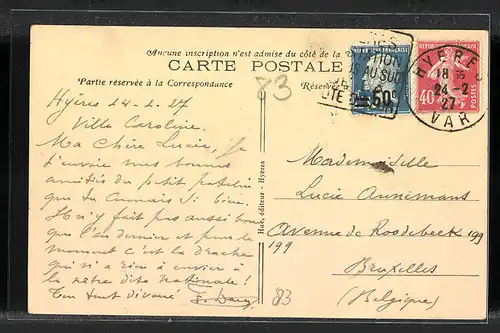 Aucune inscription n'est admise du côté de la
CARTE POSTALE
Partie réservée à la Correspondance
Réservé
RÉPUBLIQUE FRANÇAISE
=50c
RÉPUBLIQUE FRANÇAISE
40
POSTES
HYERES
18 35
24-2
27
VAR
AU SUD
83
Hyères 24-2-27
Villa Caroline.
Ma Chère Lucie, je
t'envoie mes bonnes
amitiés du petit patelin
que tu connais si bien.
Il n'y fait pas aussi bon
que l'an dernier et pour le
moment c'est la drache
qui n'a rien à envier à
la nôtre dite nationale!
Ton tout dévoué
Hué, éditeur - Hyères
Mademoiselle
Lucie Annemans
Avenue de Roodebeek 199
199
Bruxelles
(Belgique)
83